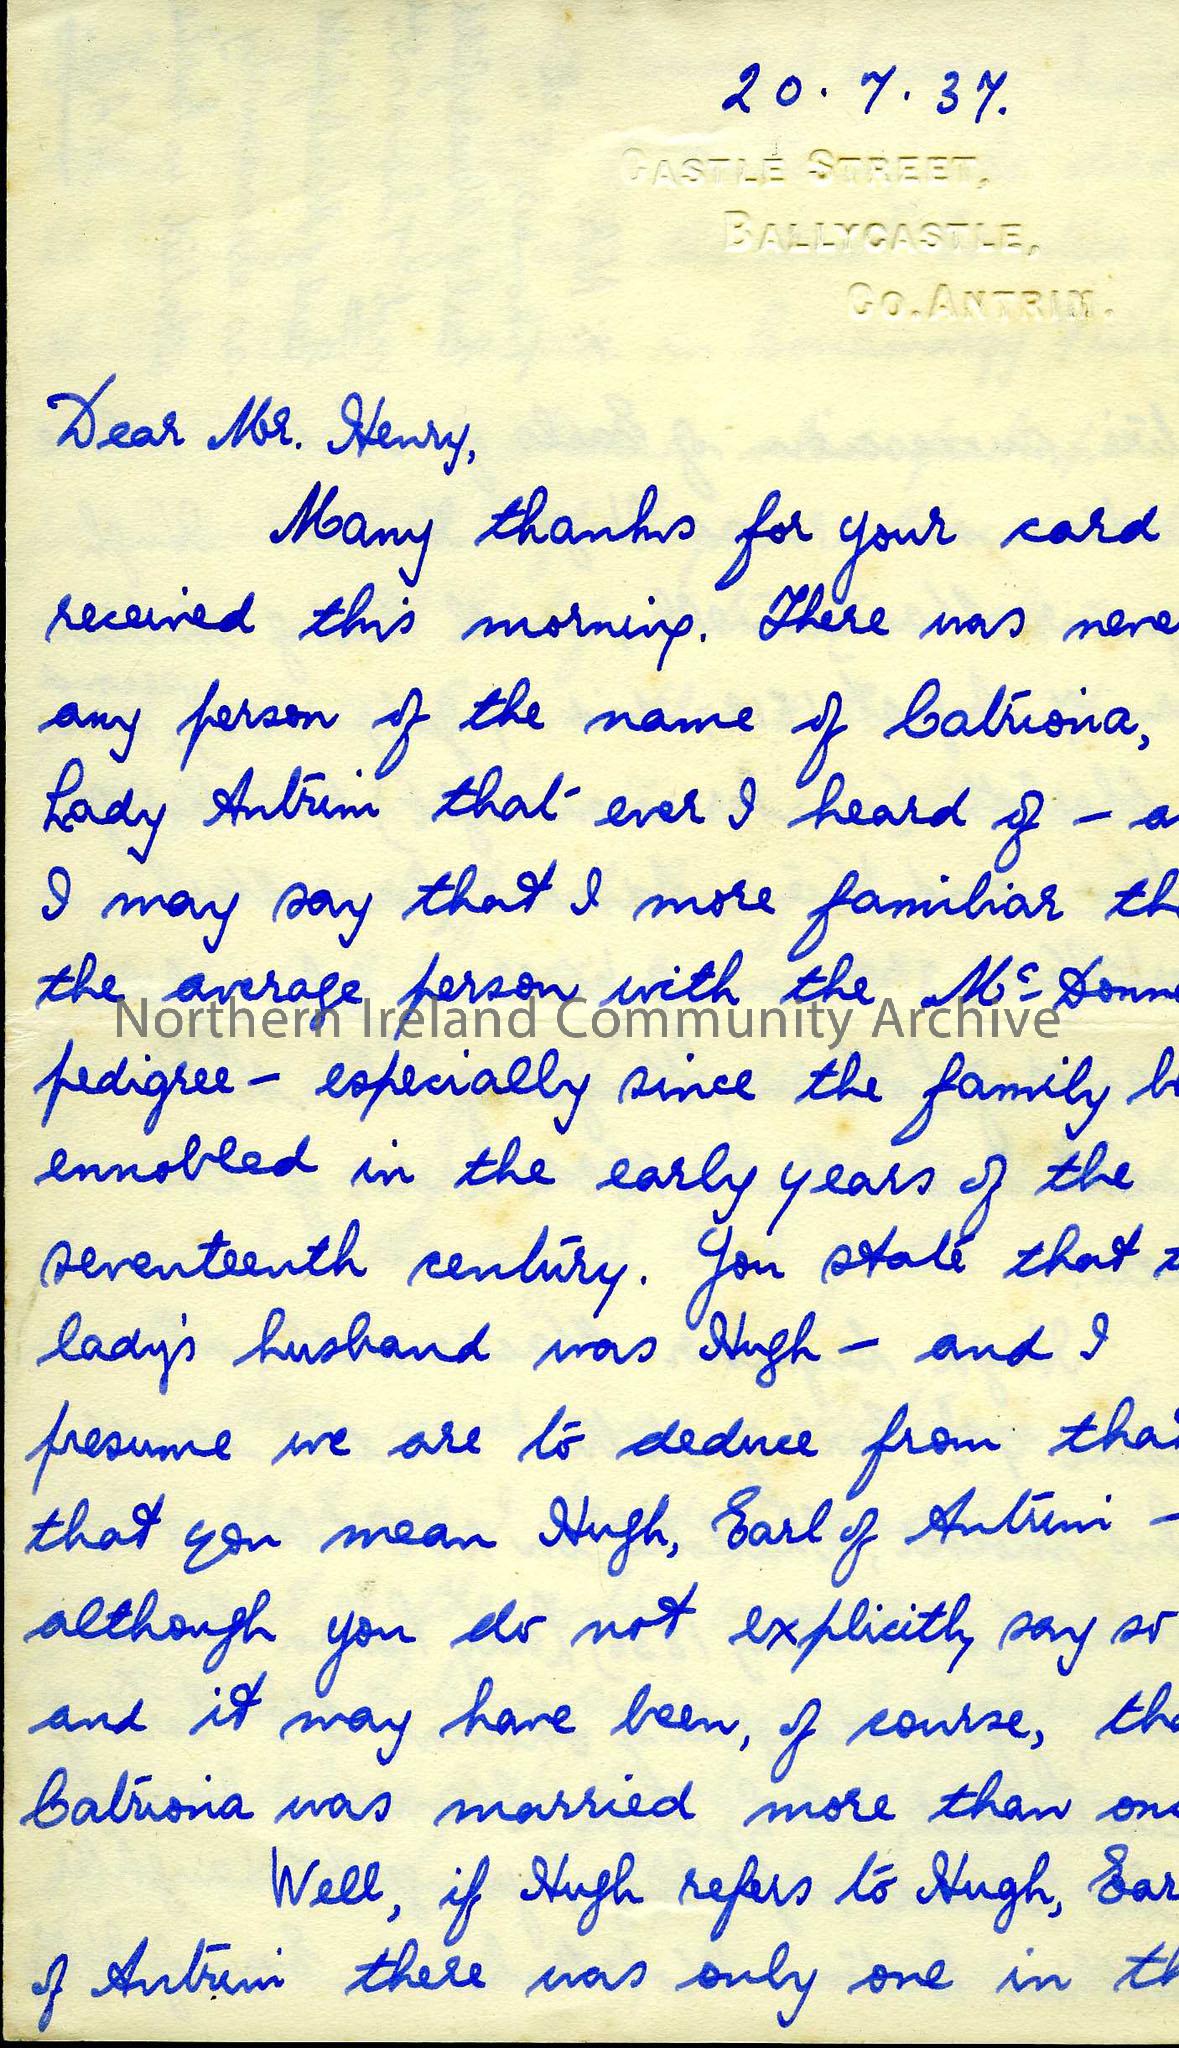 20.7.37.
CASTLE STREET,
BALLYCASTLE,
CO. ANTRIM.
Dear Mr. Henry,
Many thanks for your card
received this morning. There was neve
any person of the name of Catriona,
Lady Antrim that ever I heard of – a
I may say that I more familiar th
the average person with the McDonne
Northern Ireland Community Archive
pedigree – especially since the family b
ennobled in the early years of the
seventeenth century. You state that t
lady's husband was Hugh – and I
presume we are to deduce from that
that you mean Hugh, Earl of Antrim –
although you do not explicitly say so
and it may have been, of course, tha
Catriona was married more than onc
Well, if Hugh refers to Hugh, Ear
of Antrim there was only one in th